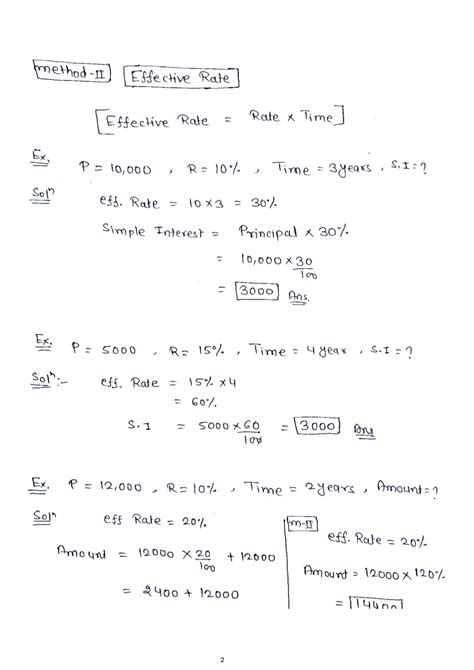 method-II Effective Rate
[Effective Rate = Rate x Time]
Ex. P = 10,000 , R = 10% , Time = 3years , S.I = ?
Solⁿ eff. Rate = 10 x 3 = 30%
Simple Interest = Principal x 30%
= 10,000 x 30/100
= 3000 Ans.
Ex. P = 5000 , R = 15% , Time = 4 year , S.I = ?
Solⁿ:- eff. Rate = 15% x 4
= 60%
S.I = 5000 x 60/100 = 3000 Ans
Ex. P = 12,000 , R = 10% , Time = 2years , Amount = ?
Solⁿ eff Rate = 20%
Amount = 12000 x 20/100 + 12000
= 2400 + 12000
m-II
eff. Rate = 20%
Amount = 12000 x 120%
= 14400
2